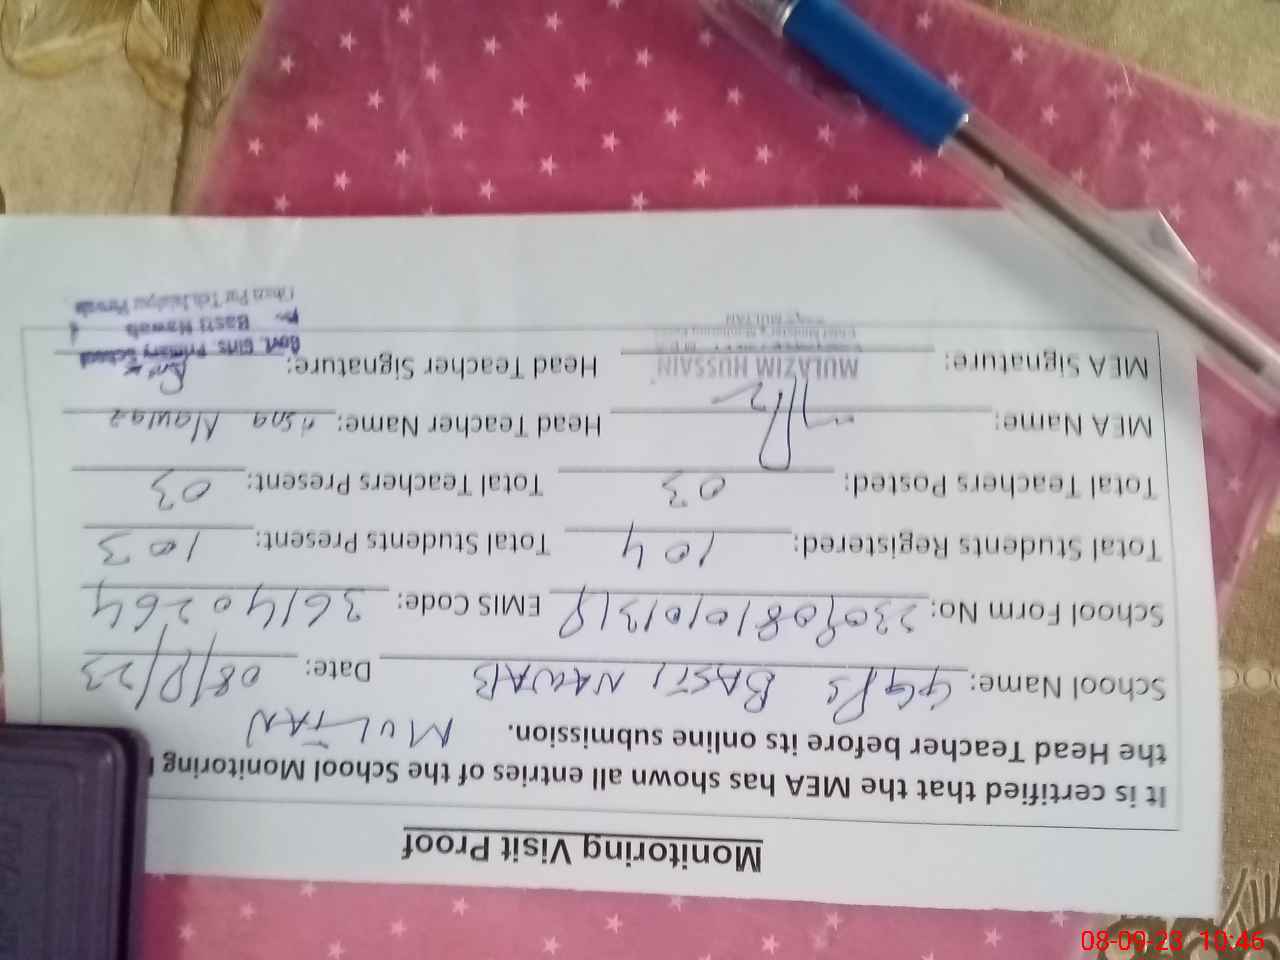 Monitoring Visit Proof
It is certified that the MEA has shown all entries of the School Monitoring
the Head Teacher before its online submission. MULTAN
School Name: GGPS BASTI NAWAB Date: 08/9/23
School Form No: EMIS Code: 36140264
Total Students Registered: 104 Total Students Present: 103
Total Teachers Posted: 03 Total Teachers Present: 03
MEA Name: Head Teacher Name: Asna Nawaz
MEA Signature: MULAZIM HUSSAIN Head Teacher Signature:
Govt. Girls Primary School
Basti Nawab
MULTAN
08-09-23 10:46